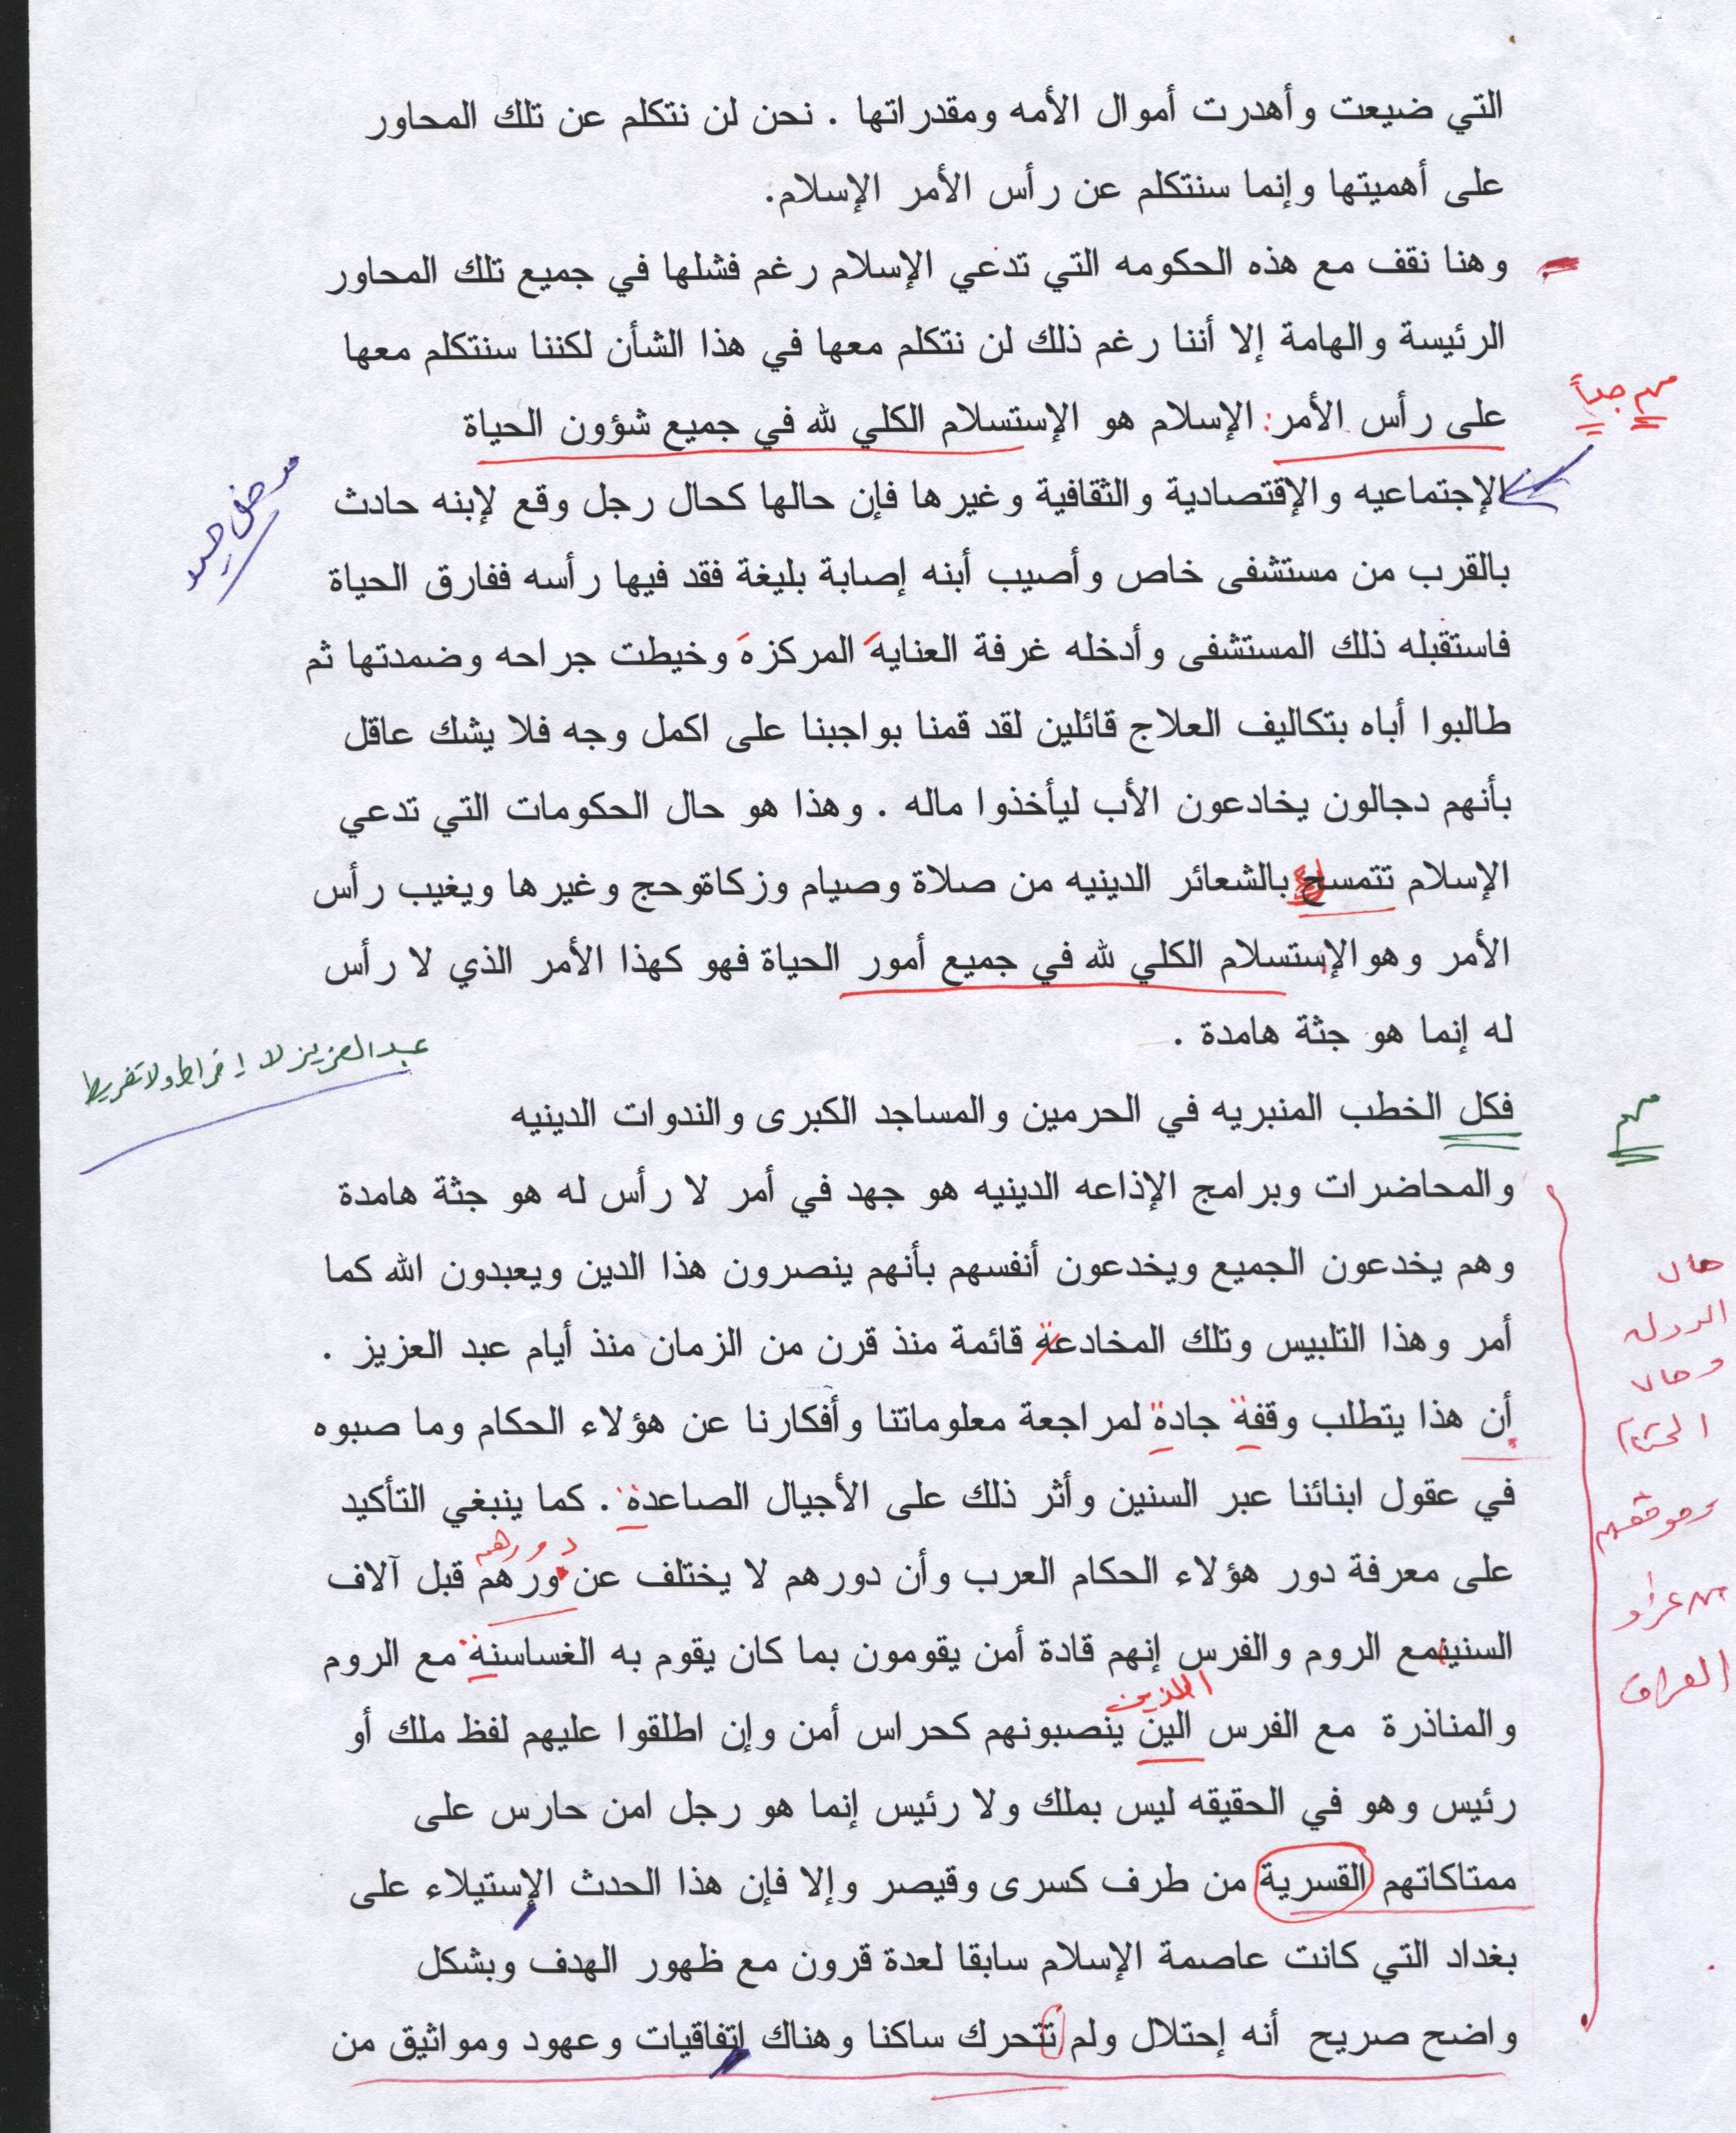 التي ضيعت وأهدرت أموال الأمه ومقدراتها . نحن لن نتكلم عن تلك المحاور
على أهميتها وإنما سنتكلم عن رأس الأمر الإسلام.
وهنا نقف مع هذه الحكومه التي تدعي الإسلام رغم فشلها في جميع تلك المحاور
الرئيسة والهامة إلا أننا رغم ذلك لن نتكلم معها في هذا الشأن لكننا سنتكلم معها
مهم جداً
على رأس الأمر: الإسلام هو الإستسلام الكلي لله في جميع شؤون الحياة
الإجتماعيه والإقتصادية والثقافية وغيرها فإن حالها كحال رجل وقع لإبنه حادث
بالقرب من مستشفى خاص وأصيب أبنه إصابة بليغة فقد فيها رأسه ففارق الحياة
فاستقبله ذلك المستشفى وأدخله غرفة العنايه المركزه وخيطت جراحه وضمدتها ثم
طالبوا أباه بتكاليف العلاج قائلين لقد قمنا بواجبنا على اكمل وجه فلا يشك عاقل
بأنهم دجالون يخادعون الأب ليأخذوا ماله . وهذا هو حال الحكومات التي تدعي
الإسلام تتمسح بالشعائر الدينيه من صلاة وصيام وزكاةوحج وغيرها ويغيب رأس
الأمر وهو الإستسلام الكلي لله في جميع أمور الحياة فهو كهذا الأمر الذي لا رأس
له إنما هو جثة هامدة .
عبد العزيز لا إفراط ولا تفريط
مهم
فكل الخطب المنبريه في الحرمين والمساجد الكبرى والندوات الدينيه
والمحاضرات وبرامج الإذاعه الدينيه هو جهد في أمر لا رأس له هو جثة هامدة
وهم يخدعون الجميع ويخدعون أنفسهم بأنهم ينصرون هذا الدين ويعبدون الله كما
أمر وهذا التلبيس وتلك المخادعة قائمة منذ قرن من الزمان منذ أيام عبد العزيز .
أن هذا يتطلب وقفة جادة لمراجعة معلوماتنا وأفكارنا عن هؤلاء الحكام وما صبوه
في عقول ابنائنا عبر السنين وأثر ذلك على الأجيال الصاعدة . كما ينبغي التأكيد
دورهم
على معرفة دور هؤلاء الحكام العرب وأن دورهم لا يختلف عن ورهم قبل آلاف
السنينمع الروم والفرس إنهم قادة أمن يقومون بما كان يقوم به الغساسنة مع الروم
الذين
والمناذرة مع الفرس الين ينصبونهم كحراس أمن وإن اطلقوا عليهم لفظ ملك أو
رئيس وهو في الحقيقه ليس بملك ولا رئيس إنما هو رجل امن حارس على
ممتاكاتهم القسرية من طرف كسرى وقيصر وإلا فإن هذا الحدث الإستيلاء على
بغداد التي كانت عاصمة الإسلام سابقا لعدة قرون مع ظهور الهدف وبشكل
واضح صريح أنه إحتلال ولم تتحرك ساكنا وهناك إتفاقيات وعهود ومواثيق من
حال
الدول
وحال
الحكام
وموقفهم
العراق